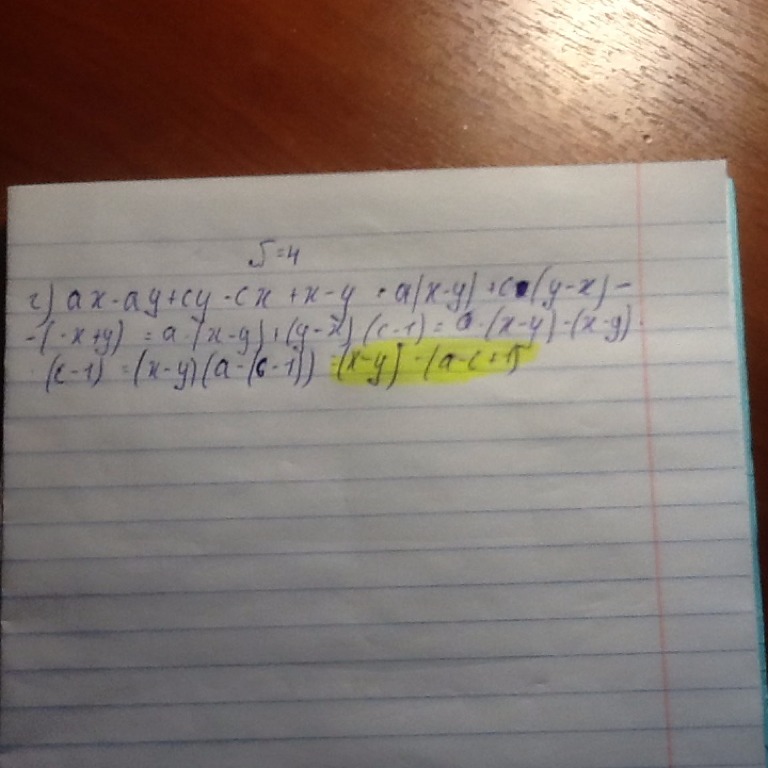 √=4
г) ax-ay+cy-cx+x-y = a(x-y)+c(y-x)-
-(-x+y) = a·(x-y)+(y-x)(c-1) = a·(x-y)-(x-y)·
·(c-1) = (x-y)(a-(c-1)) = (x-y)·(a-c+1)